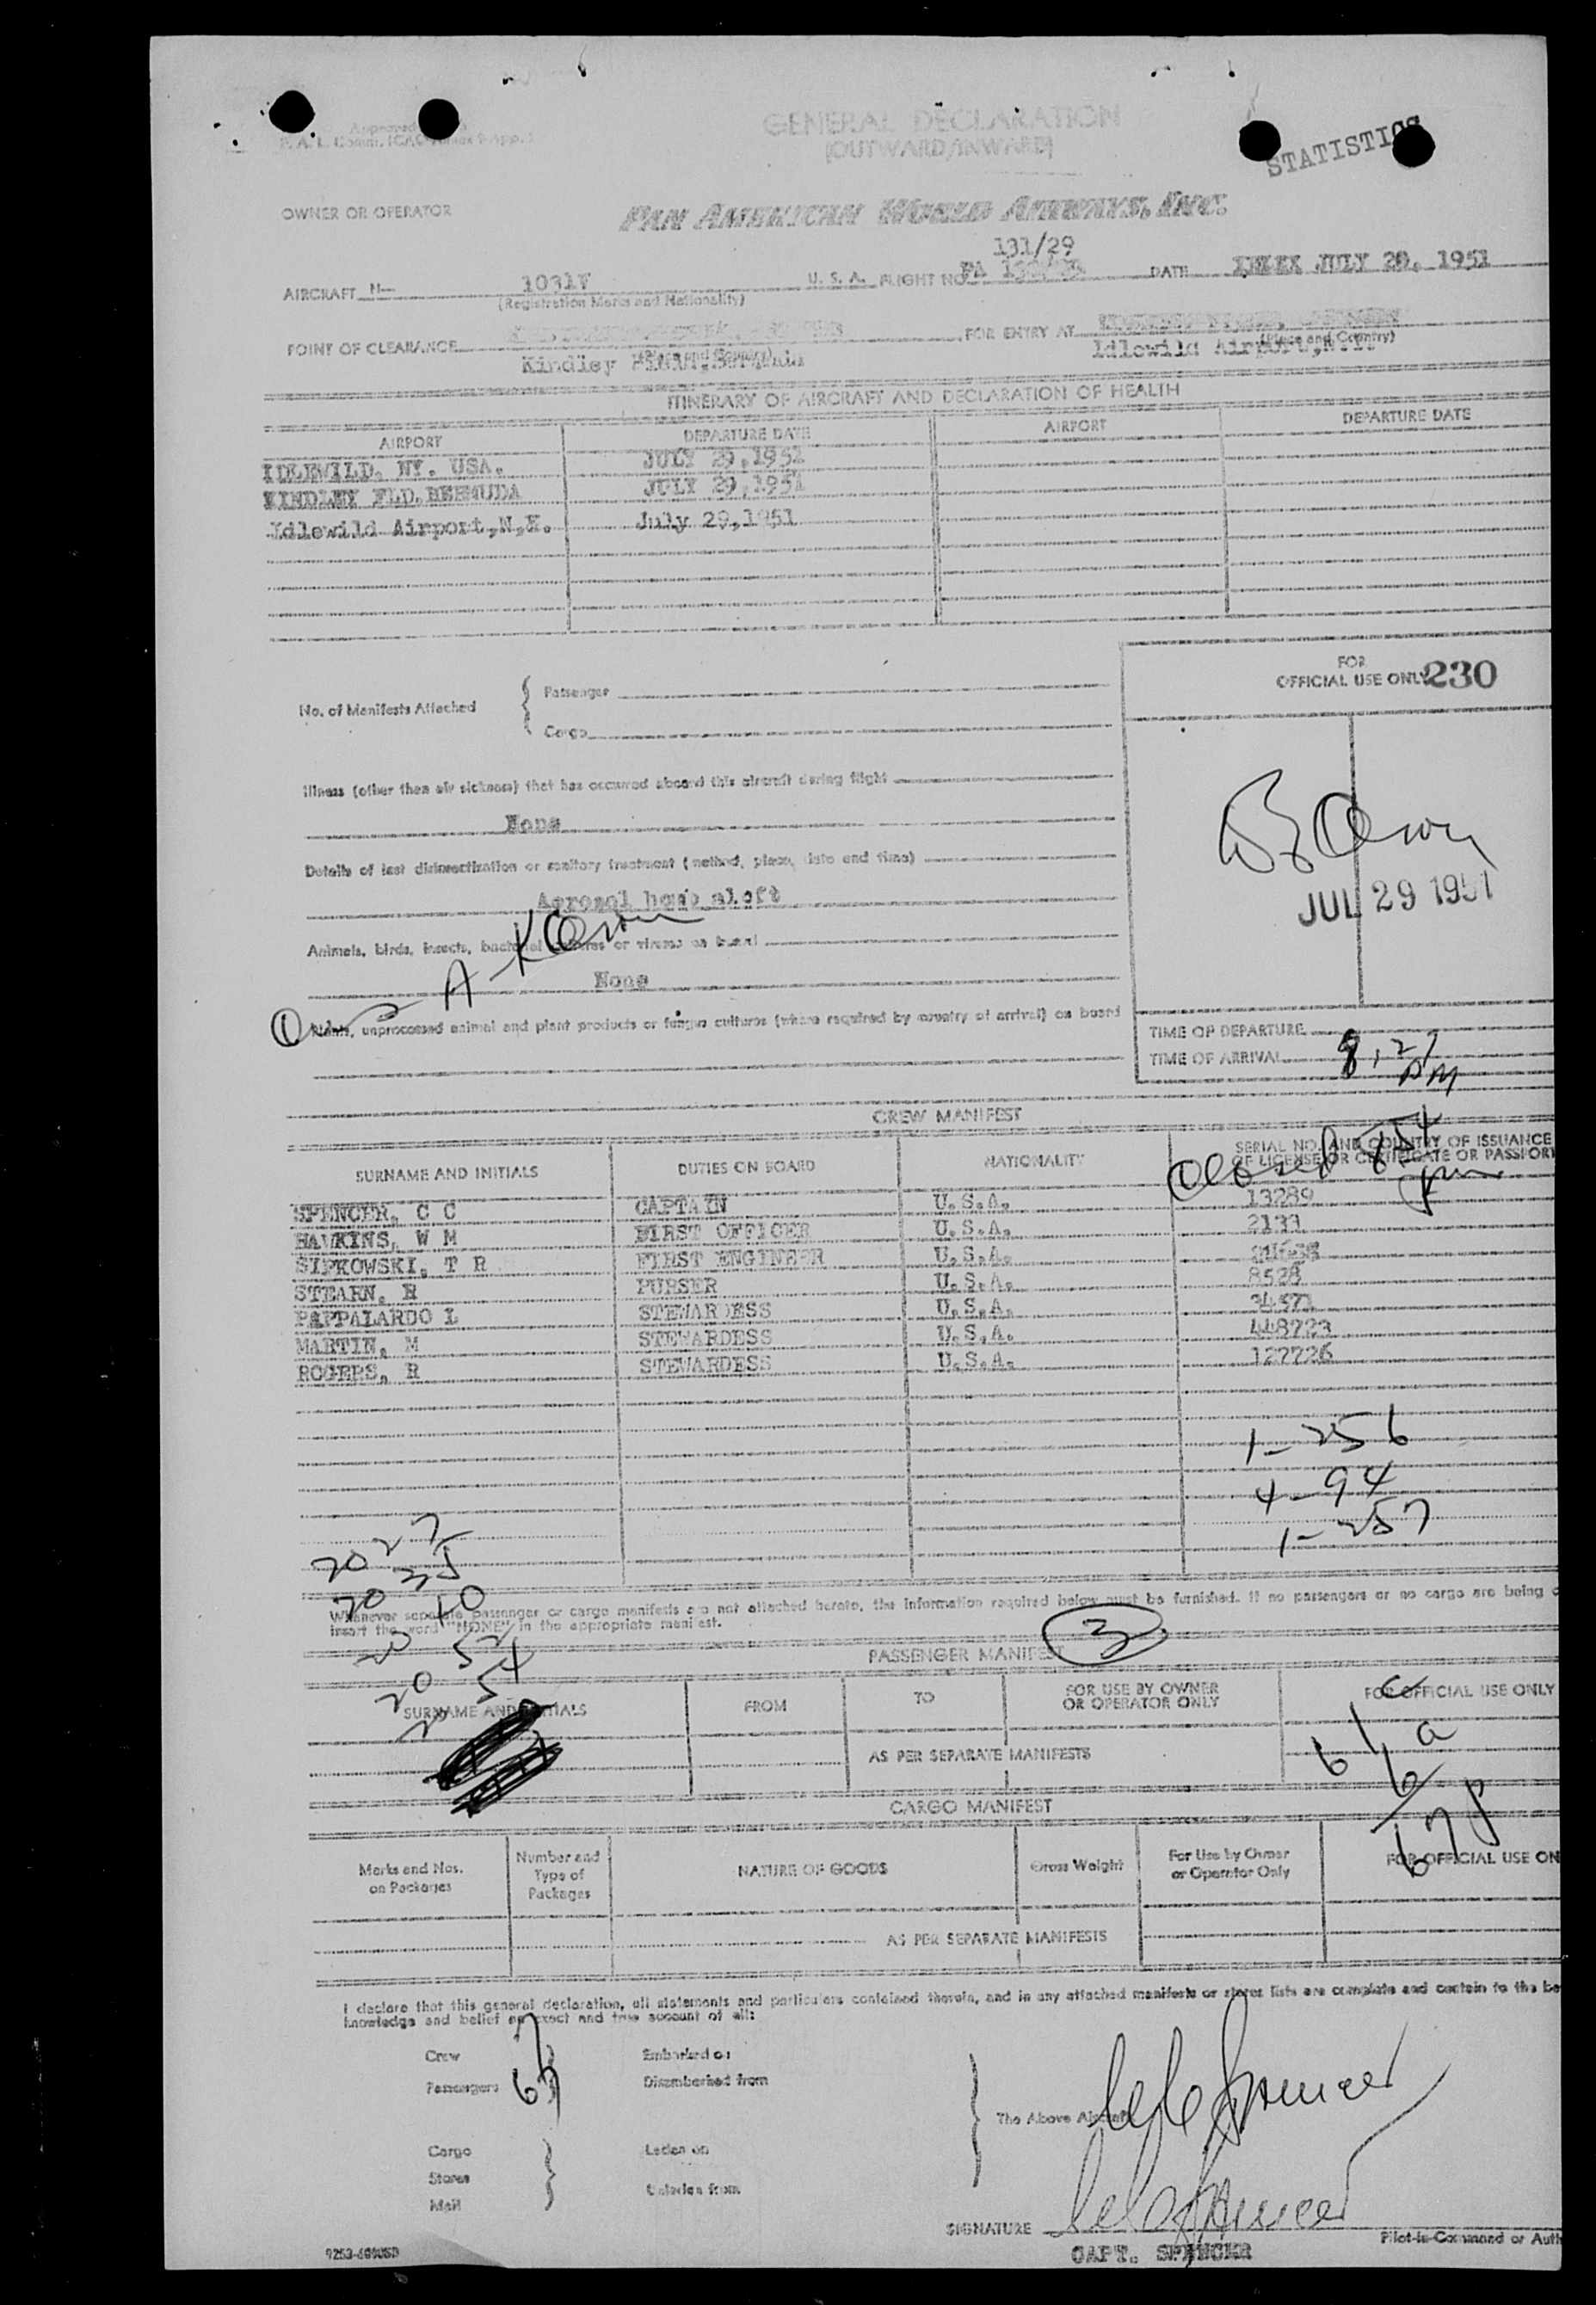 GENERAL DECLARATION
(OUTWARD/INWARD)
STATISTICS
OWNER OR OPERATOR
PAN AMERICAN WORLD AIRWAYS, INC.
131/29
AIRCRAFT N 1031V U. S. A. FLIGHT NO. PA DATE JULY 29, 1951
(Registration Marks and Nationality)
POINT OF CLEARANCE FOR ENTRY AT
(Place and Country)
Kindley Field, Bermuda
Idlewild Airport, N.Y.
ITINERARY OF AIRCRAFT AND DECLARATION OF HEALTH
AIRPORT DEPARTURE DATE AIRPORT DEPARTURE DATE
IDLEWILD, NY. USA. JULY 29,1951
KINDLEY FLD. BERMUDA JULY 29,1951
Idlewild Airport,N.Y. July 29,1951
FOR
OFFICIAL USE ONLY 230
No. of Manifests Attached
Passenger
Cargo
Illness (other than air sickness) that has occurred aboard this aircraft during flight
None
Details of last disinsectization or sanitary treatment (method, place, date and time)
Aerosol bomb aloft
JUL 29 1951
Animals, birds, insects, bacterial cultures or viruses on board
None
Plants, unprocessed animal and plant products or fungus cultures (where required by country of arrival) on board
TIME OF DEPARTURE
TIME OF ARRIVAL 8:27 PM
CREW MANIFEST
SURNAME AND INITIALS DUTIES ON BOARD NATIONALITY SERIAL NO. AND COUNTRY OF ISSUANCE
OF LICENSE OR CERTIFICATE OR PASSPORT
Closed 854 pm
SPENCER, C C CAPTAIN U.S.A. 13289
HAWKINS, W M FIRST OFFICER U.S.A. 2133
SIPKOWSKI, T R FIRST ENGINEER U.S.A.
STEARN, R PURSER U.S.A. 8528
PAPPALARDO L STEWARDESS U.S.A. 34571
MARTIN, M STEWARDESS U.S.A. 448723
ROGERS, R STEWARDESS U.S.A. 127726
1-256
4-94
1-257
20 27
20 35
20 50
20 52
20 54
Whenever separate passenger or cargo manifests are not attached hereto, the information required below must be furnished. If no passengers or no cargo are being
insert the word "NONE" in the appropriate manifest.
3
PASSENGER MANIFEST
SURNAME AND INITIALS FROM TO FOR USE BY OWNER
OR OPERATOR ONLY FOR OFFICIAL USE ONLY
AS PER SEPARATE MANIFESTS
61 a
6
67 p
CARGO MANIFEST
Marks and Nos.
on Packages
Number and
Type of
Packages
NATURE OF GOODS
Gross Weight
For Use by Owner
or Operator Only
FOR OFFICIAL USE ON
AS PER SEPARATE MANIFESTS
I declare that this general declaration, all statements and particulars contained therein, and in any attached manifests or stores lists are complete and contain to the be
knowledge and belief an exact and true account of all:
Crew 7 Embarked on
Passengers 67 Disembarked from
The Above Aircraft
C C Spencer
Cargo Laden on
Stores
Mail Unladen from
SIGNATURE C C Spencer
Pilot-in-Command or Auth
CAPT. SPENCER